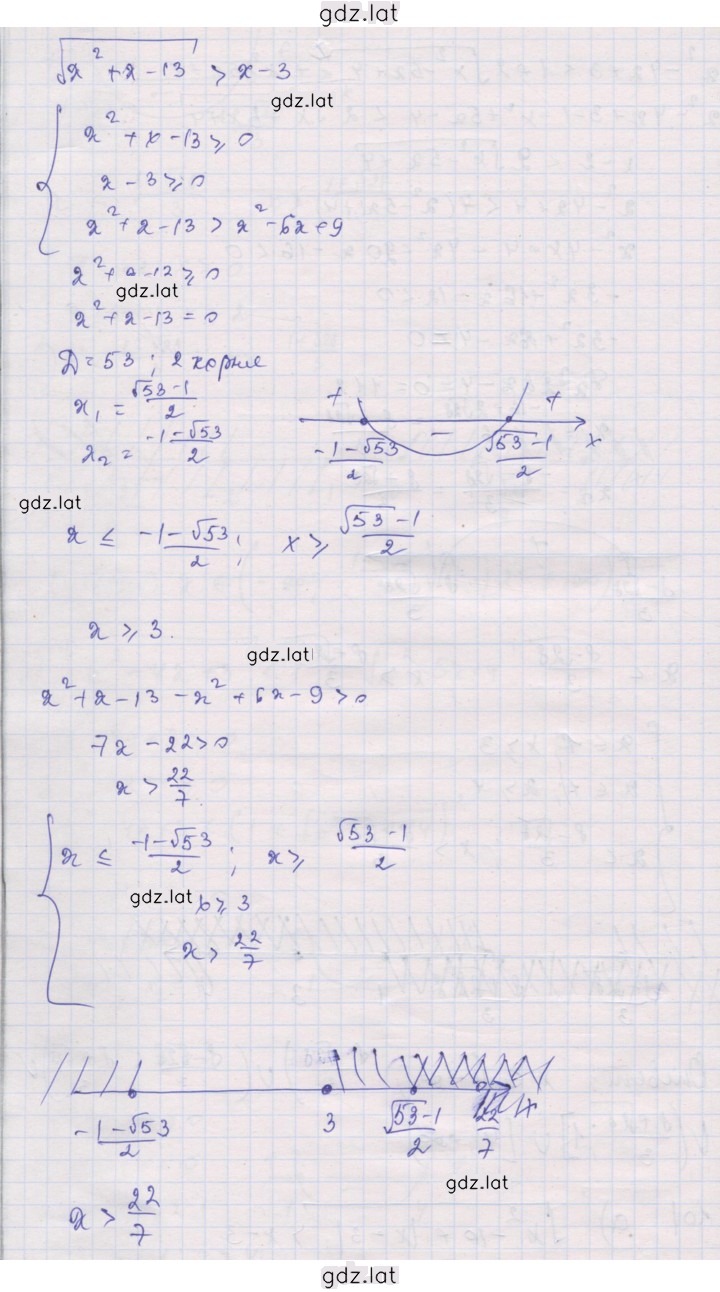 gdz.lat
√(x² + x - 13) > x - 3
gdz.lat
x² + x - 13 ≥ 0
x - 3 ≥ 0
x² + x - 13 > x² - 6x + 9
x² + x - 13 ≥ 0
gdz.lat
x² + x - 13 = 0
D = 53 ; 2 корня
x₁ = (√53 - 1)/2
x₂ = (-1 - √53)/2
+ - + x
(-1 - √53)/2 (√53 - 1)/2
gdz.lat
x ≤ (-1 - √53)/2 ; x ≥ (√53 - 1)/2
x ≥ 3.
gdz.lat
x² + x - 13 - x² + 6x - 9 > 0
7x - 22 > 0
x > 22/7
x ≤ (-1 - √53)/2 ; x ≥ (√53 - 1)/2
gdz.lat
x ≥ 3
x > 22/7
(-1 - √53)/2 3 (√53 - 1)/2 22/7 x
gdz.lat
x > 22/7
gdz.lat